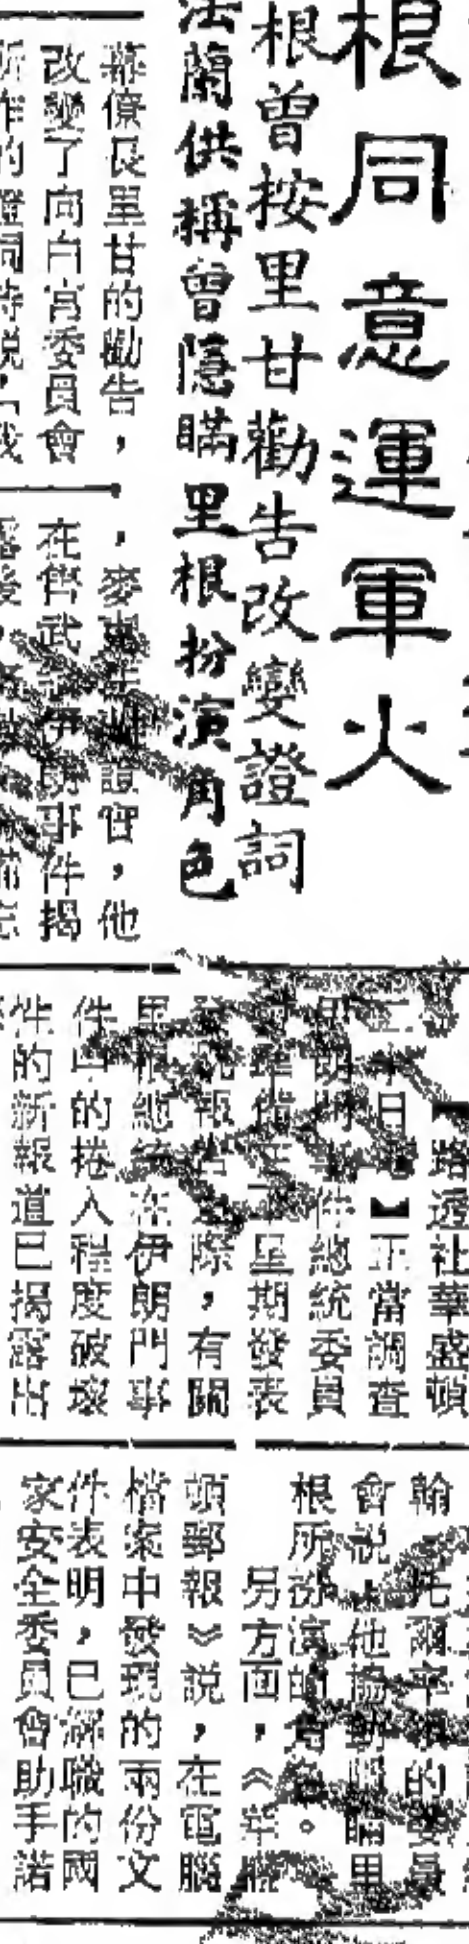 根同意運軍火
根曾按里甘勸告改變證詞
法蘭供稱曾隱瞞里根扮演角色
幕僚長里甘的勸告，
改變了向白宮委員會
所作的證詞時說，「我
，麥 證實，他
在售武 伊朗事件揭
露後，
【路透社華盛頓
二十日電】正當調查
伊朗門事件總統委員
會準備在下星期發表
報告之際，有關
里根總統在伊朗門事
件中的捲入程度破壞
性的新報道已揭露出
翰·托爾率領的委員
會說，他協助隱瞞里
根所扮演的角色。
另方面，《華盛
頓郵報》說，在電腦
檔案中發現的兩份文
件表明，已解職的國
家安全委員會助手諾